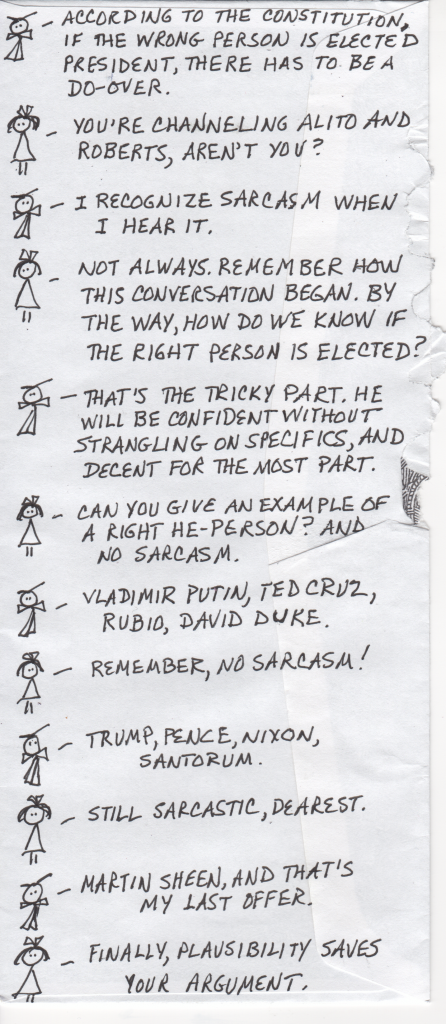 - ACCORDING TO THE CONSTITUTION,
IF THE WRONG PERSON IS ELECTED
PRESIDENT, THERE HAS TO BE A
DO-OVER.
- YOU'RE CHANNELING ALITO AND
ROBERTS, AREN'T YOU?
- I RECOGNIZE SARCASM WHEN
I HEAR IT.
- NOT ALWAYS. REMEMBER HOW
THIS CONVERSATION BEGAN. BY
THE WAY, HOW DO WE KNOW IF
THE RIGHT PERSON IS ELECTED?
- THAT'S THE TRICKY PART. HE
WILL BE CONFIDENT WITHOUT
STRANGLING ON SPECIFICS, AND
DECENT FOR THE MOST PART.
- CAN YOU GIVE AN EXAMPLE OF
A RIGHT HE-PERSON? AND
NO SARCASM.
- VLADIMIR PUTIN, TED CRUZ,
RUBIO, DAVID DUKE.
- REMEMBER, NO SARCASM!
- TRUMP, PENCE, NIXON,
SANTORUM.
- STILL SARCASTIC, DEAREST.
- MARTIN SHEEN, AND THAT'S
MY LAST OFFER.
- FINALLY, PLAUSIBILITY SAVES
YOUR ARGUMENT.